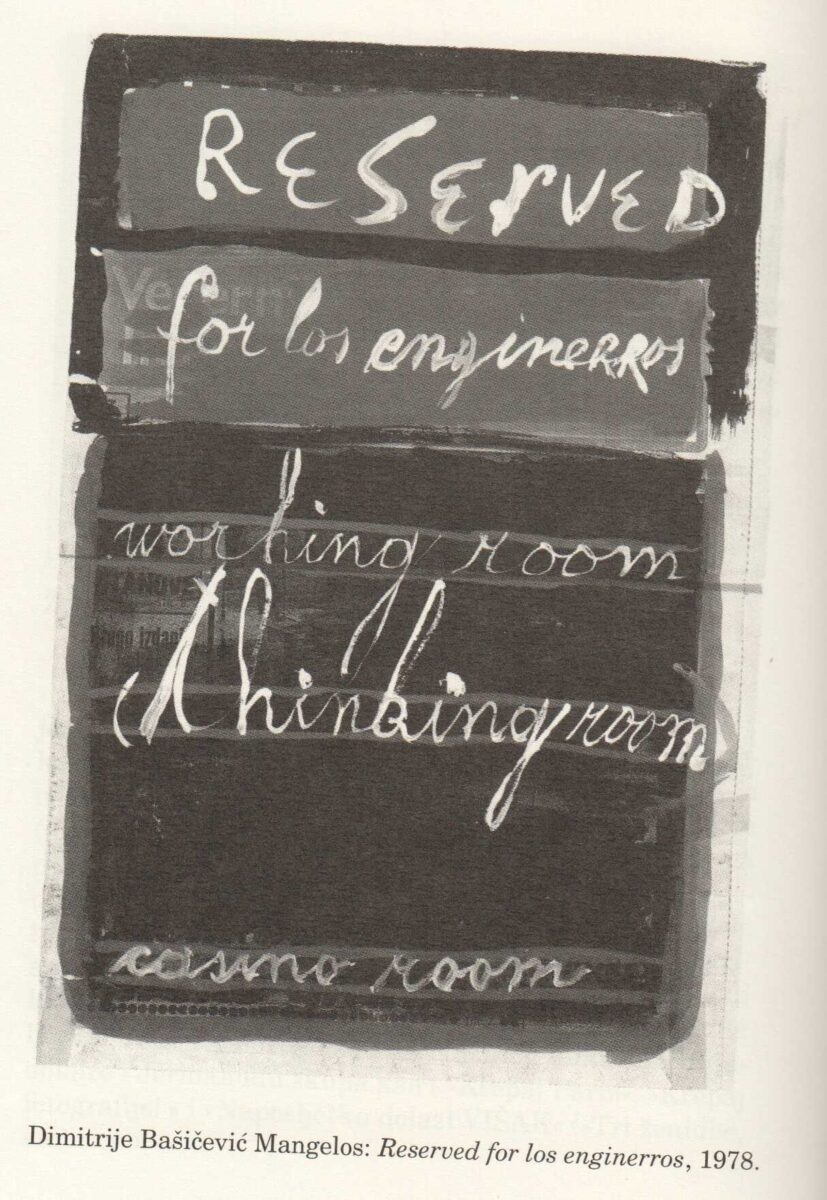 RESERVED
for los enginerros
working room
thinking room
casino room
Dimitrije Bašičević Mangelos: Reserved for los enginerros, 1978.